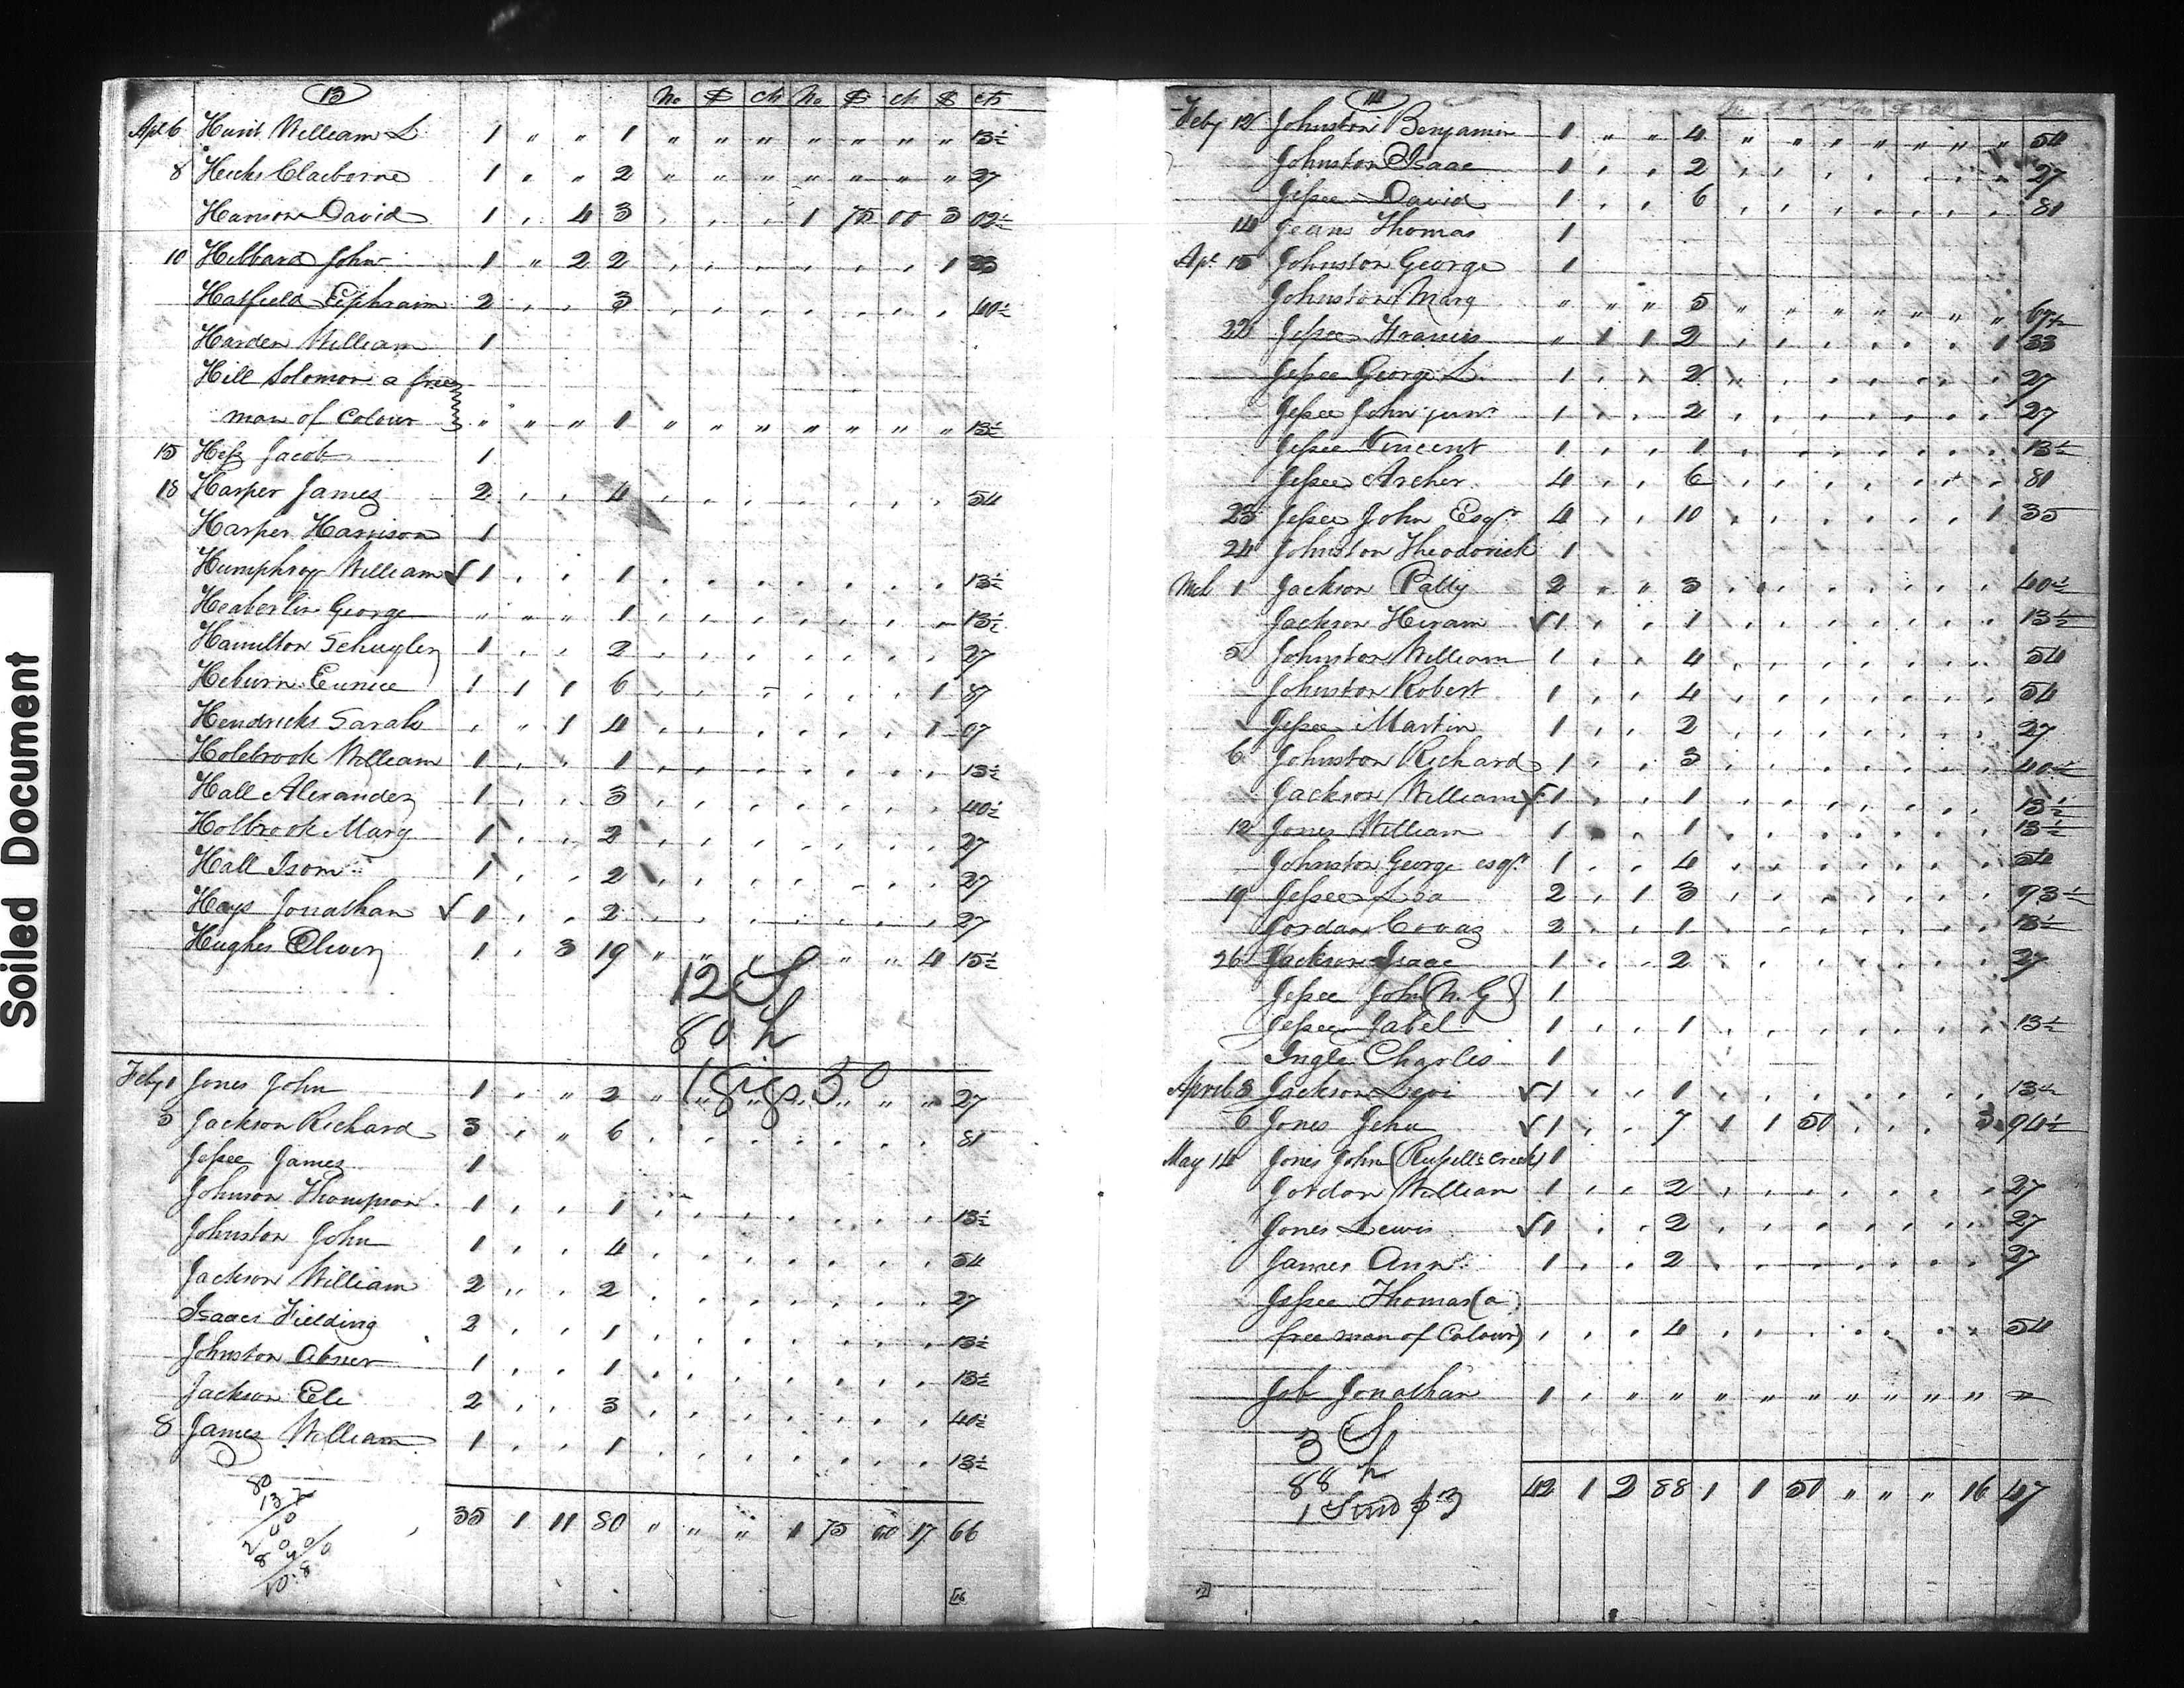 Soiled Document
13
No $ cts No $ cts $ cts
Apl 6 Hunt William L 1 " " 1 " " " " " " " 13½
8 Hicks Claiborne 1 " " 2 " " " " " " " 27
Hanson David 1 , 4 3 , , , 1 75 00 3 02½
10 Hibbard John 1 " 2 2 , , , , , , 1 33
Hatfield Ephraim 2 , , 3 , , , , , , , 40½
Harden William 1
Hill Solomon a free
man of Colour " " " 1 " " " " " " " 13½
15 Hess Jacob 1
18 Harper James 2 , , 4 , , , , , , , 54
Harper Harrison 1
Humphrey William ✓ 1 , , 1 , , , , , , , 13½
Heaberlin George " " " 1 , , , , , , , 13½
Hamilton Schuyler 1 , , 2 , , , , , , , 27
Heburn Eunice 1 1 1 6 , , , , , , 1 87
Hendricks Sarah , " 1 4 , , , , , , 1 07
Holebrook William 1 , , 1 , , , , , , , 13½
Hall Alexander 1 , , 3 , , , , , , , 40½
Holbrook Mary 1 , , 2 , , , , , , , 27
Hall Isom 1 , , 2 , , , , , , , 27
Hays Jonathan ✓ 1 , , 2 , , , , , , , 27
Hughes Oliver 1 , 3 19 " " " " " " 4 15½
12 S
80 h
1 gigs 50
Feby 1 Jones John 1 " " 2 " " " " " " " 27
5 Jackson Richard 3 , " 6 , , , , , , , 81
Jessee James 1
Johnson Thompson 1 , , 1 , , , , , , , 13½
Johnston John 1 , , 4 , , , , , , , 54
Jackson William 2 " , 2 , , , , , , , 27
Isaacs Fielding 2 , , 1 , , , , , , , 13½
Johnston Abner 1 , , 1 , , , , , , , 13½
Jackson Eli 2 , , 3 , , , , , , , 40½
8 James William 1 , , 1 , , , , , , , 13½
80
13½
35 1 11 80 " " " 1 75 00 17 66
[16
14
Feby 12 Johnston Benjamin 1 " " 4 " " " " " " " 54
Johnston Isaac 1 , , 2 , , , , , , , 27
Jessee David 1 , , 6 , , , , , , , 81
14 Jeans Thomas 1
Apl 15 Johnston George 1
Johnston Mary " " " 5 " " " " " " " 67½
22 Jessee Francis " 1 1 2 , , , , , , 1 33
Jessee George L. 1 , , 2 , , , , , , , 27
Jessee John junr 1 , , 2 , , , , , , , 27
Jessee Vincent 1 , , 1 , , , , , , , 13½
Jessee Archer 4 , , 6 , , , , , , , 81
23 Jessee John Esqr 4 , , 10 , , , , , , 1 35
24 Johnston Theodorick 1
Mch 1 Jackson Patty 2 " " 3 , , , , , , , 40½
Jackson Hiram ✓ 1 , , 1 , , , , , , , 13½
5 Johnston William 1 , , 4 , , , , , , , 54
Johnston Robert 1 , , 4 , , , , , , , 54
Jessee Martin 1 , , 2 , , , , , , , 27
6 Johnston Richard 1 , , 3 , , , , , , , 40½
Jackson William ✓ 1 , , 1 , , , , , , , 13½
12 Jones William 1 , , 1 , , , , , , , 13½
Johnston George esqr 1 , , 4 , , , , , , , 54
19 Jessee Lea 2 , 1 3 , , , , , , , 93½
Jordan 2 , , 1 , , , , , , , 13½
26 Jackson Isaac 1 , , 2 , , , , , , , 27
Jessee John (N. G) 1
Jessee Jabel 1 , , 1 , , , , , , , 13½
Ingle Charles 1
April 3 Jackson Levi ✓ 1 , , 1 , , , , , , , 13½
6 Jones Jehu ✓ 1 , , 7 1 1 50 , , , 3 94½
May 14 Jones John (Russells Creek) 1
Gordon William 1 , , 2 , , , , , , , 27
Jones Lewis ✓ 1 , , 2 , , , , , , , 27
James Ann 1 , , 2 , , , , , , , 27
Jessee Thomas (a
free man of Colour) , , , 4 , , , , , , , 54
Job Jonathan 1 , " " " " " " " " " "
3 S
88 h
42 1 2 88 1 1 50 " " " 16 47